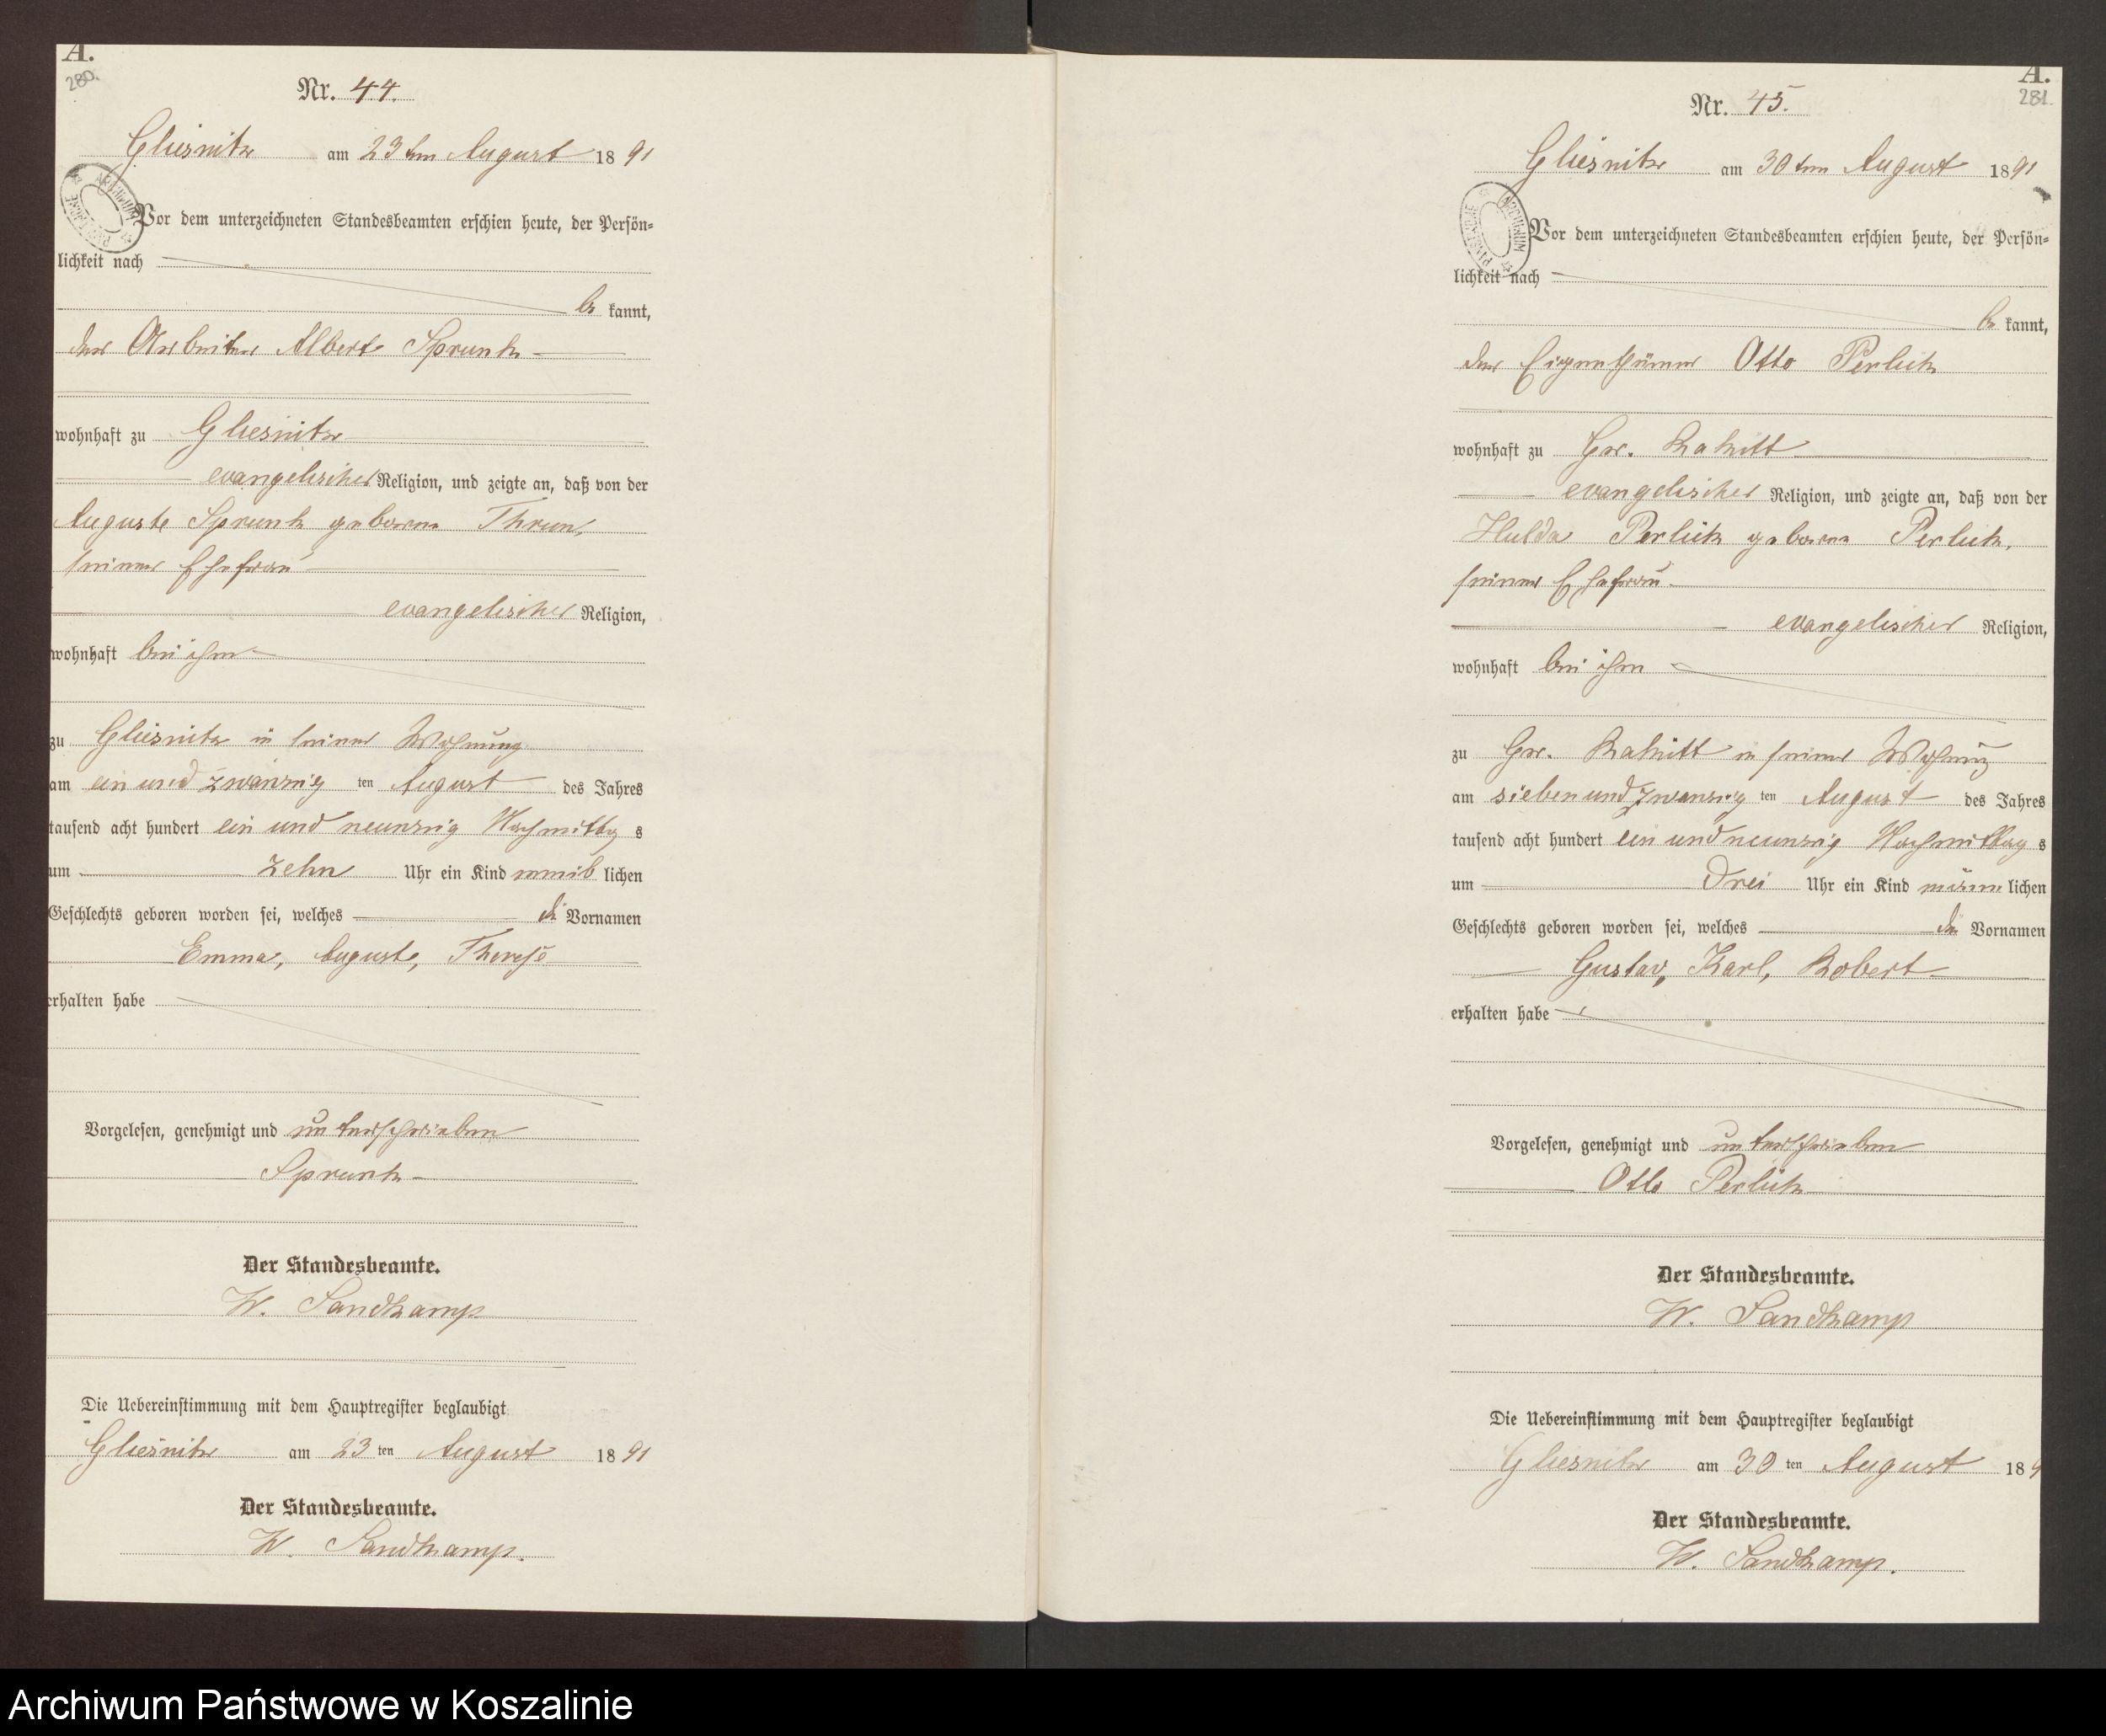 A.
280.
Nr. 44.
Gliesnitz am 23ten August 1891
Vor dem unterzeichneten Standesbeamten erschien heute, der Persön-
lichkeit nach
be kannt,
der Arbeiter Albert Sprunk
wohnhaft zu Gliesnitz
evangelischer Religion, und zeigte an, daß von der
Auguste Sprunk geborene Thrun,
seiner Ehefrau
evangelischer Religion,
wohnhaft bei ihm
zu Gliesnitz in seiner Wohnung
am ein und zwanzig ten August des Jahres
tausend acht hundert ein und neunzig Nachmittag s
um zehn Uhr ein Kind weib lichen
Geschlechts geboren worden sei, welches die Vornamen
Emma, Auguste, Therese
erhalten habe
Vorgelesen, genehmigt und unterschrieben
Sprunk
Der Standesbeamte.
W. Sandkamp
Die Uebereinstimmung mit dem Hauptregister beglaubigt
Gliesnitz am 23 ten August 1891
Der Standesbeamte.
W. Sandkamp.
A.
281.
Nr. 45.
Gliesnitz am 30ten August 1891
Vor dem unterzeichneten Standesbeamten erschien heute, der Persön-
lichkeit nach
be kannt,
der Eigenthümer Otto Perlick
wohnhaft zu Gr. Rakitt
evangelischer Religion, und zeigte an, daß von der
Hulda Perlick geborene Perlick,
seiner Ehefrau
evangelischer Religion,
wohnhaft bei ihm
zu Gr. Rakitt in seiner Wohnung
am sieben und zwanzig ten August des Jahres
tausend acht hundert ein und neunzig Nachmittag s
um drei Uhr ein Kind männ lichen
Geschlechts geboren worden sei, welches die Vornamen
Gustav, Karl, Robert
erhalten habe
Vorgelesen, genehmigt und unterschrieben
Otto Perlick
Der Standesbeamte.
W. Sandkamp
Die Uebereinstimmung mit dem Hauptregister beglaubigt
Gliesnitz am 30 ten August 189
Der Standesbeamte.
W. Sandkamp.
Archiwum Państwowe w Koszalinie